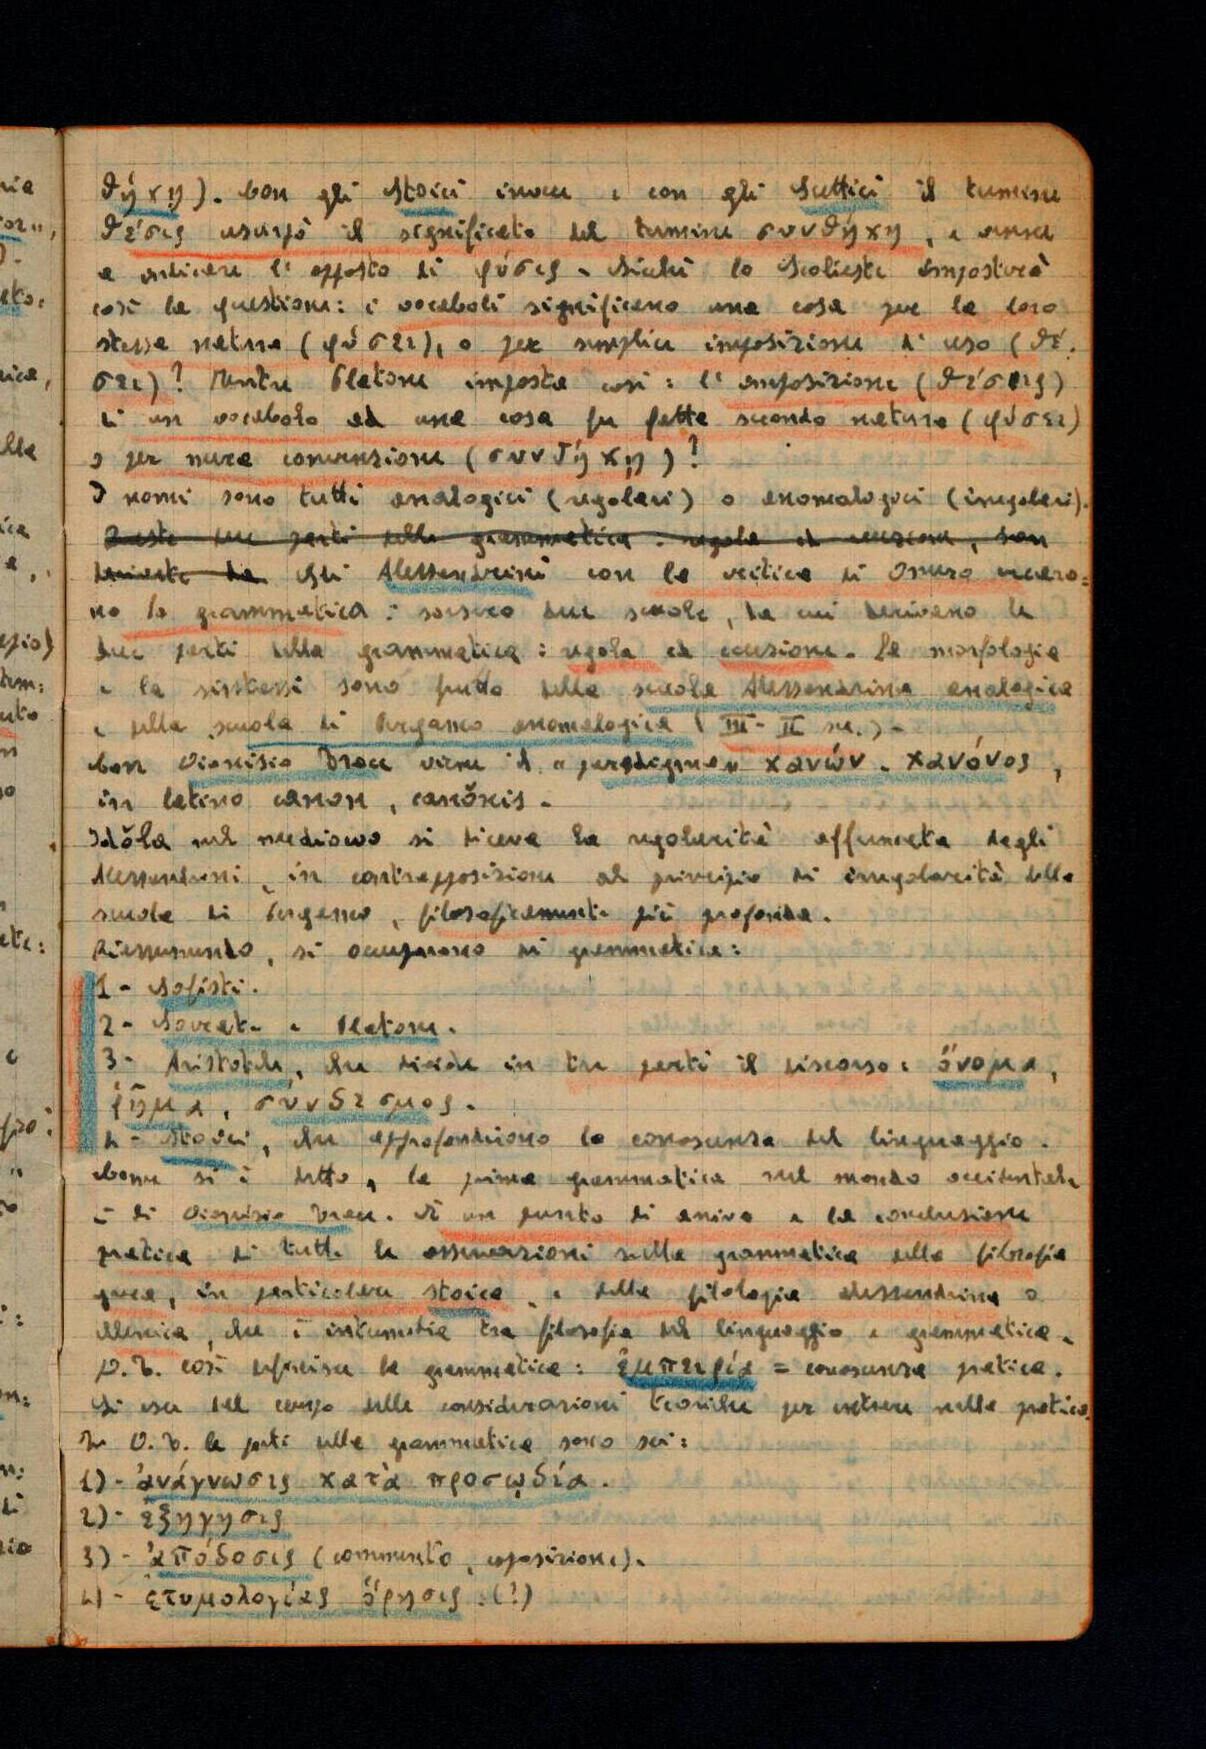 θήκῃ). Con gli Stoici invece e con gli Scettici il termine
θέσις usurpò il significato del termine συνθήκη, e venne
a indicare l'opposto di φύσις. Sicché lo Scoliasta imposterà
così la questione: i vocaboli significano una cosa per la loro
stessa natura (φύσει), o per semplice imposizione d'uso (θέ-
σει)? Mentre Platone imposta così: l'imposizione (θέσις)
di un vocabolo ad una cosa fu fatta secondo natura (φύσει)
o per mera convenzione (συνθήκῃ)?
I nomi sono tutti analogici (regolari) o anomalogici (irregolari).
Queste due parti della grammatica: regola ed eccezione, son
derivate da Gli Alessandrini con la critica di Omero crearo=
no la grammatica: sorsero due scuole, da cui derivano le
due parti della grammatica: regola ed eccezione. La morfologia
e la sintassi sono frutto della scuola Alessandrina analogica
e della scuola di Pergamo anomalogica (III-II sec.).
Con Dionisio Trace viene il "paradigma" κανών. κανόνος,
in latino canon, canŏnis.
nel medioevo si diceva la regolarità affermata dagli
Alessandrini, in contrapposizione al principio di irregolarità della
scuola di Pergamo, filosoficamente più profonda.
Riassumendo, si occuparono di grammatica:
1- Sofisti.
2- Socrate e Platone.
3- Aristotele, che divide in tre parti il discorso: ὄνομα,
ῥῆμα, σύνδεσμος.
4- Stoici, che approfondirono la conoscenza del linguaggio.
Come si è detto, la prima grammatica nel mondo occidentale
è di Dionisio Trace. È un punto di arrivo e la conclusione
pratica di tutte le osservazioni sulla grammatica della filosofia
greca, in particolare stoica, e della filologia alessandrina o
ellenica, che è intermedia tra filosofia del linguaggio e grammatica.
D.T. così definisce la grammatica: ἐμπειρία = conoscenza pratica.
Si esce dal campo delle considerazioni teoriche per entrare nella pratica.
In D.T. le parti della grammatica sono sei:
1)- ἀνάγνωσις κατὰ προσῳδία.
2)- ἐξήγησις
3)- ἀπόδοσις (commento, esposizione).
4)- ἐτυμολογίας ὅρησις.(?)